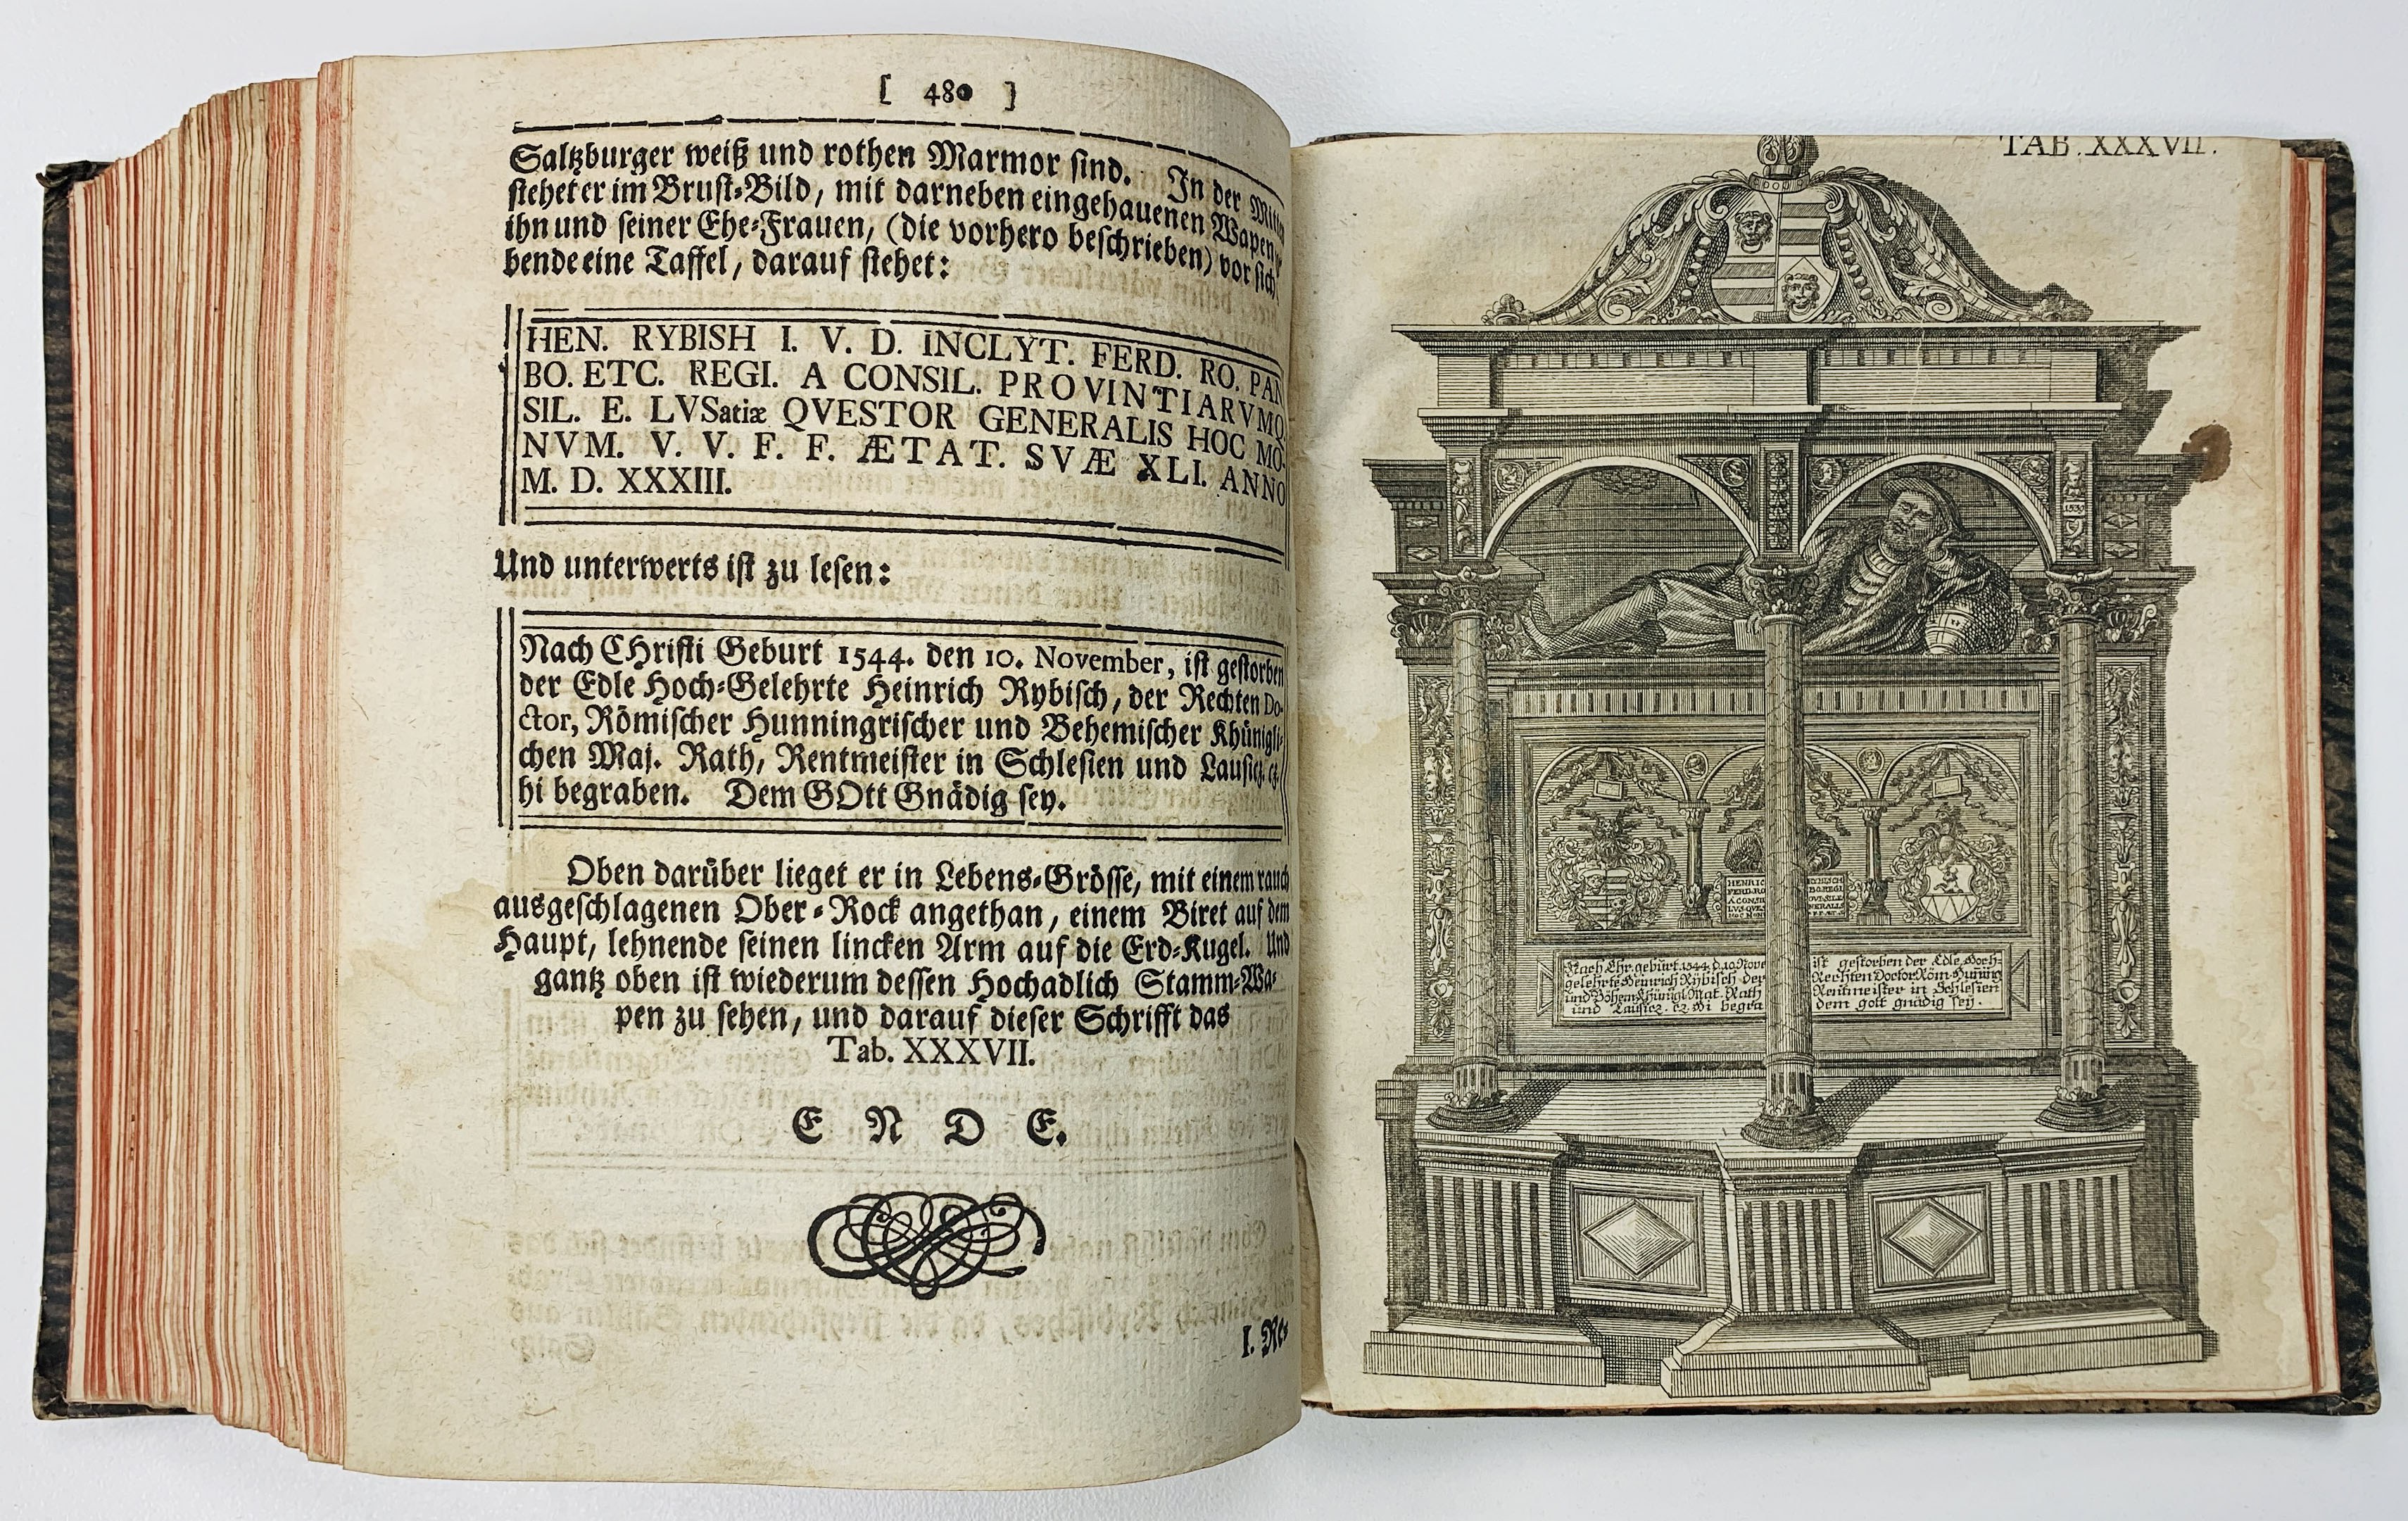 [ 480 ]
Saltzburger weiß und rothen Marmor sind. In der Mitten
stehet er im Brust-Bild, mit darneben eingehauenen Wapen,
ihn und seiner Ehe-Frauen, (die vorhero beschrieben) vor sich
bende eine Taffel, darauf stehet:
HEN. RYBISH I. V. D. INCLYT. FERD. RO. PAN
BO. ETC. REGI. A CONSIL. PROVINTIARVMQ.
SIL. E. LVSatiæ QVESTOR GENERALIS HOC MO-
NVM. V. V. F. F. ÆTAT. SVÆ XLI. ANNO
M. D. XXXIII.
Und unterwerts ist zu lesen:
Nach CHristi Geburt 1544. den 10. November, ist gestorben
der Edle Hoch-Gelehrte Heinrich Rybisch, der Rechten Do-
ctor, Römischer Hunningrischer und Behemischer Khünigli-
chen Maj. Rath, Rentmeister in Schlesien und
hi begraben. Dem GOtt Gnädig sey.
Oben darüber lieget er in Lebens-Grösse, mit einem rauch
ausgeschlagenen Ober-Rock angethan, einem Biret auf dem
Haupt, lehnende seinen lincken Arm auf die Erd-Kugel. Und
gantz oben ist wiederum dessen Hochadlich Stamm-Wa-
pen zu sehen, und darauf dieser Schrifft das
Tab. XXXVII.
E N D E.
I. Re-
TAB. XXXVII.
HENRIC RYBISCH
FERD. RO BO. REGI
A CONSI
LVS. QVES NERALIS
HOC MON
Nach Chr. geburt 1544. d. 10 Nove ist gestorben der Edle Hoch-
gelehrte Heinrich Rybisch der Rechten Doctor Röm. Huning
und Böhem. Khünigl. Mat. Rath Rentmeister in Schlesien
und Lausicz. cz. Hi begra dem gott gnädig sey.